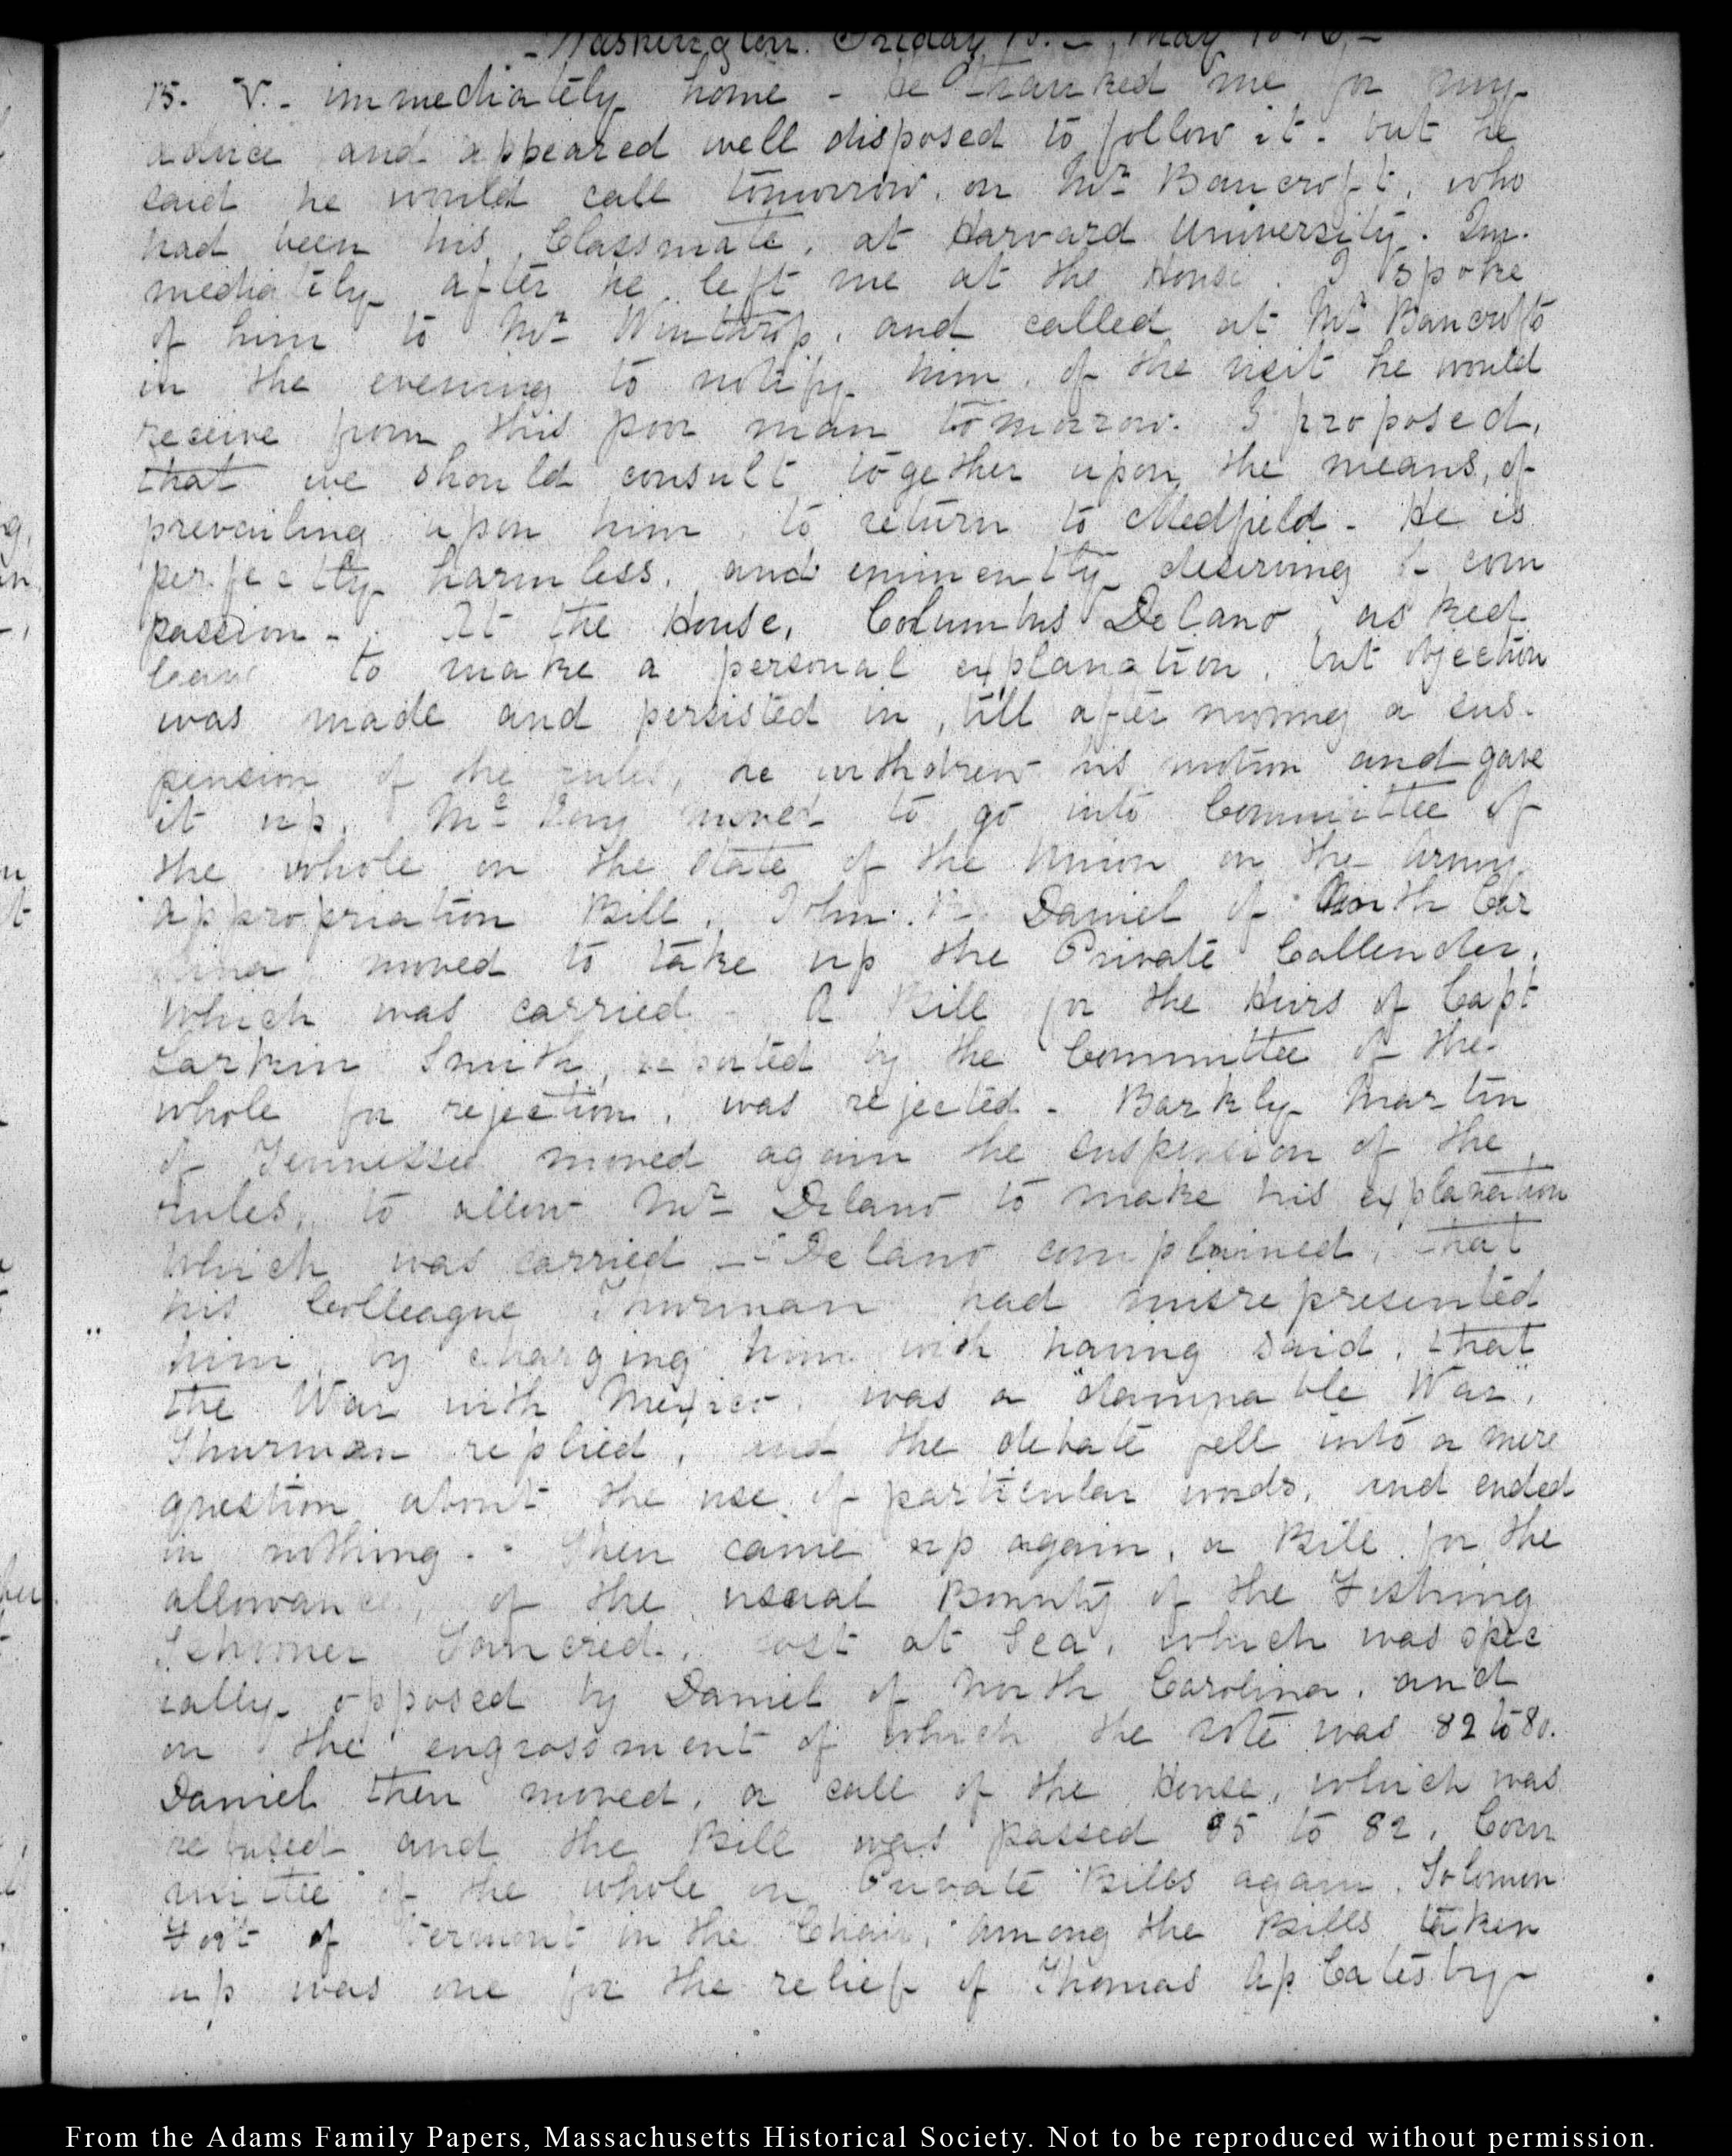 Washington. Friday 15. May 1846
15. V. immediately home - he thanked me for my
advice and appeared well disposed to follow it - but he
said he would call tomorrow, on Mr. Bancroft, who
had been his Classmate, at Harvard University. Im-
mediately after he left me at the House. I spoke
of him to Mr. Winthrop, and called at Mr. Bancroft's
in the evening to notify him, of the visit he would
receive from this poor man tomorrow. I proposed,
that we should consult together upon the means, of
prevailing upon him, to return to Medfield - He is
perfectly harmless, and eminently deserving of com
passion - At the House, Columbus Delano asked
leave to make a personal explanation, but objection
was made and persisted in, till after moving a sus-
pension of the rules, he withdrew his motion and gave
it up. Mc Kay moved to go into Committee of
the whole on the state of the Union on the Army
appropriation Bill. John R. Daniel of North Car
olina moved to take up the Private Callender,
which was carried - A Bill for the Heirs of Capt
Larkin Smith, reported by the Committee of the
whole for rejection, was rejected - Barkly Martin
of Tennessee moved again the suspension of the
rules, to allow Mr. Delano to make his explanation
which was carried - Delano complained, that
his Colleague Thurman had misrepresented
him by charging him with having said, that
the War with Mexico, was a "damnable War".
Thurman replied, and the debate fell into a mere
question about the use of particular words, and ended
in nothing. - Then came up again, a Bill for the
allowance, of the usual Bounty of the Fishing
Schooner Tancred, lost at Sea, which was spec
ially opposed by Daniel of North Carolina, and
on the engrossment of which the vote was 82 to 80.
Daniel then moved, a call of the House, which was
refused and the Bill was passed 85 to 82. Com
mittee of the whole on Private Bills again. Solomon
Foot of Vermont in the Chair, among the Bills taken
up was one for the relief of Thomas Ap Catesby
From the Adams Family Papers, Massachusetts Historical Society. Not to be reproduced without permission.